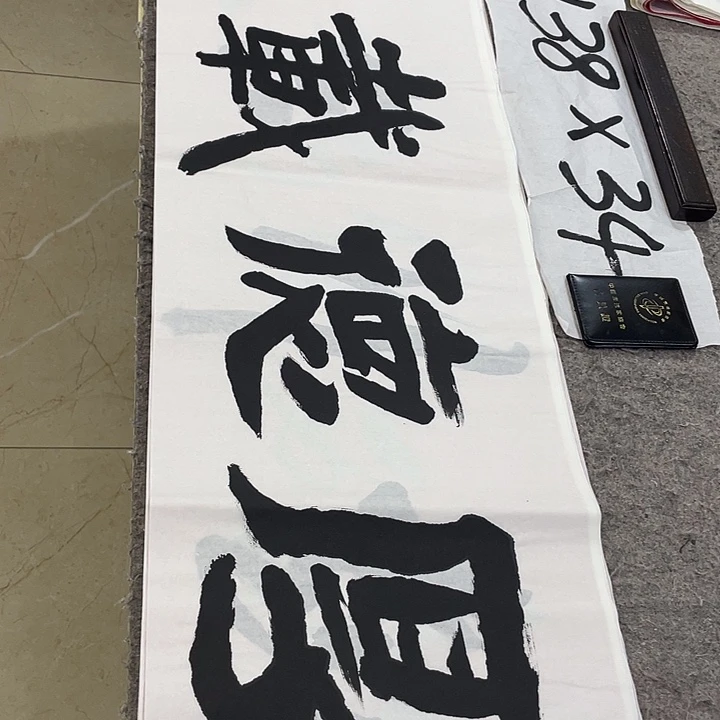 厚德載
138 X 34